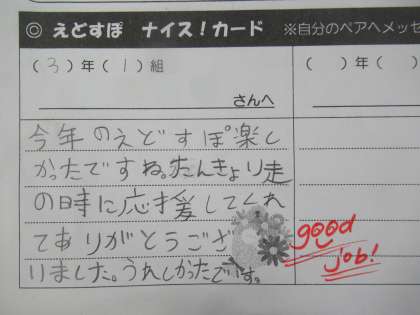 © えどすぽ ナイス！カード ※自分のペアへメッセ
(3)年(1)組
( )年( )
さんへ
今年のえどすぽ楽し
かったですね。たんきょり走
の時に応援してくれ
てありがとうござ
りました。うれしかったです。
good
job!